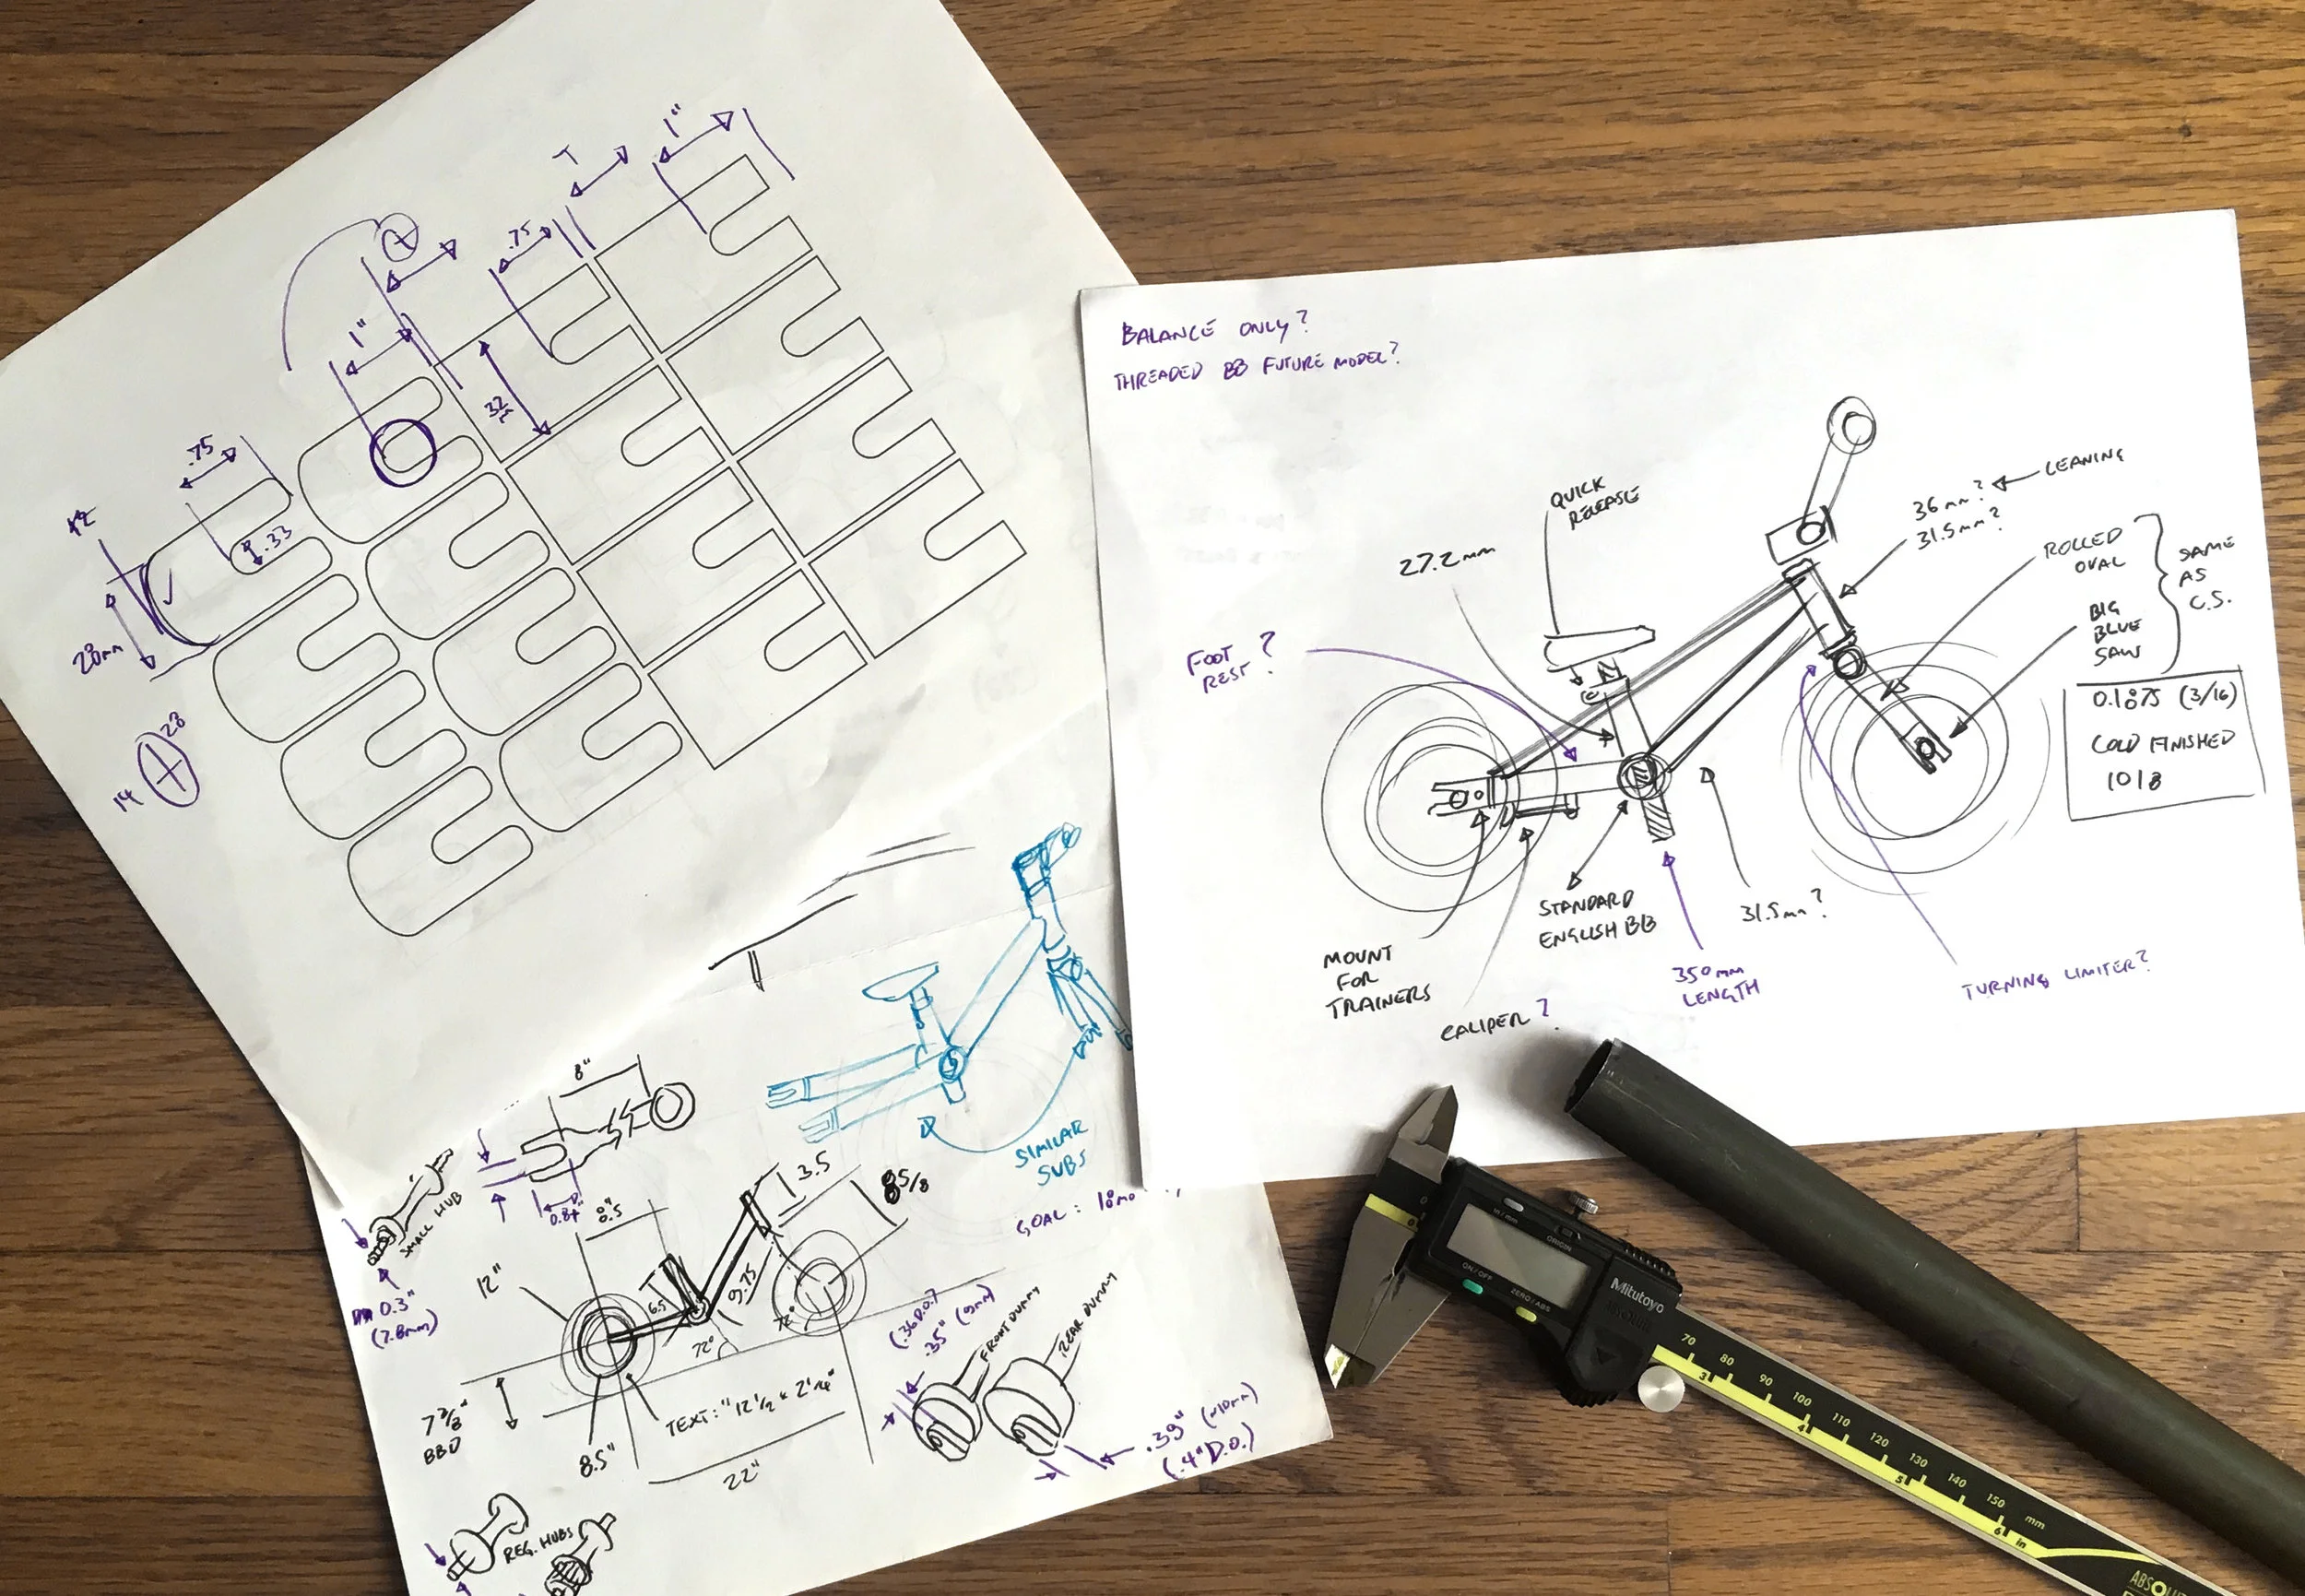 1"
T
.75
1"
32
.75
.33
28mm
14
28
BALANCE ONLY?
THREADED BB FUTURE MODEL?
QUICK
RELEASE
27.2mm
FOOT
REST?
36mm?
31.5mm?
LEANING
ROLLED
OVAL
BIG
BLUE
SAW
SAME
AS
C.S.
0.1875 (3/16)
COLD FINISHED
1018
STANDARD
ENGLISH BB
31.5mm?
MOUNT
FOR
TRAINERS
CALIPER?
350mm
LENGTH
TURNING LIMITER?
8"
SIMILAR
SUBS
GOAL: 18mo
SMALL HUB
0.3"
(7.8mm)
3.5
8 5/8
12"
6.5
9.75
72°
72°
7 3/8"
BBD
8.5"
TEXT: "12 1/2 x 2 1/4"
22"
.35" (9mm)
FRONT DUMMY
REAR DUMMY
.39" (~10mm)
(.4" D.O.)
REG. HUBS
in/mm
ORIGIN
ON/OFF
ZERO/ABS
Mitutoyo
70 80 90 100 110 120 130 140 150 mm
3 4 5 6 in